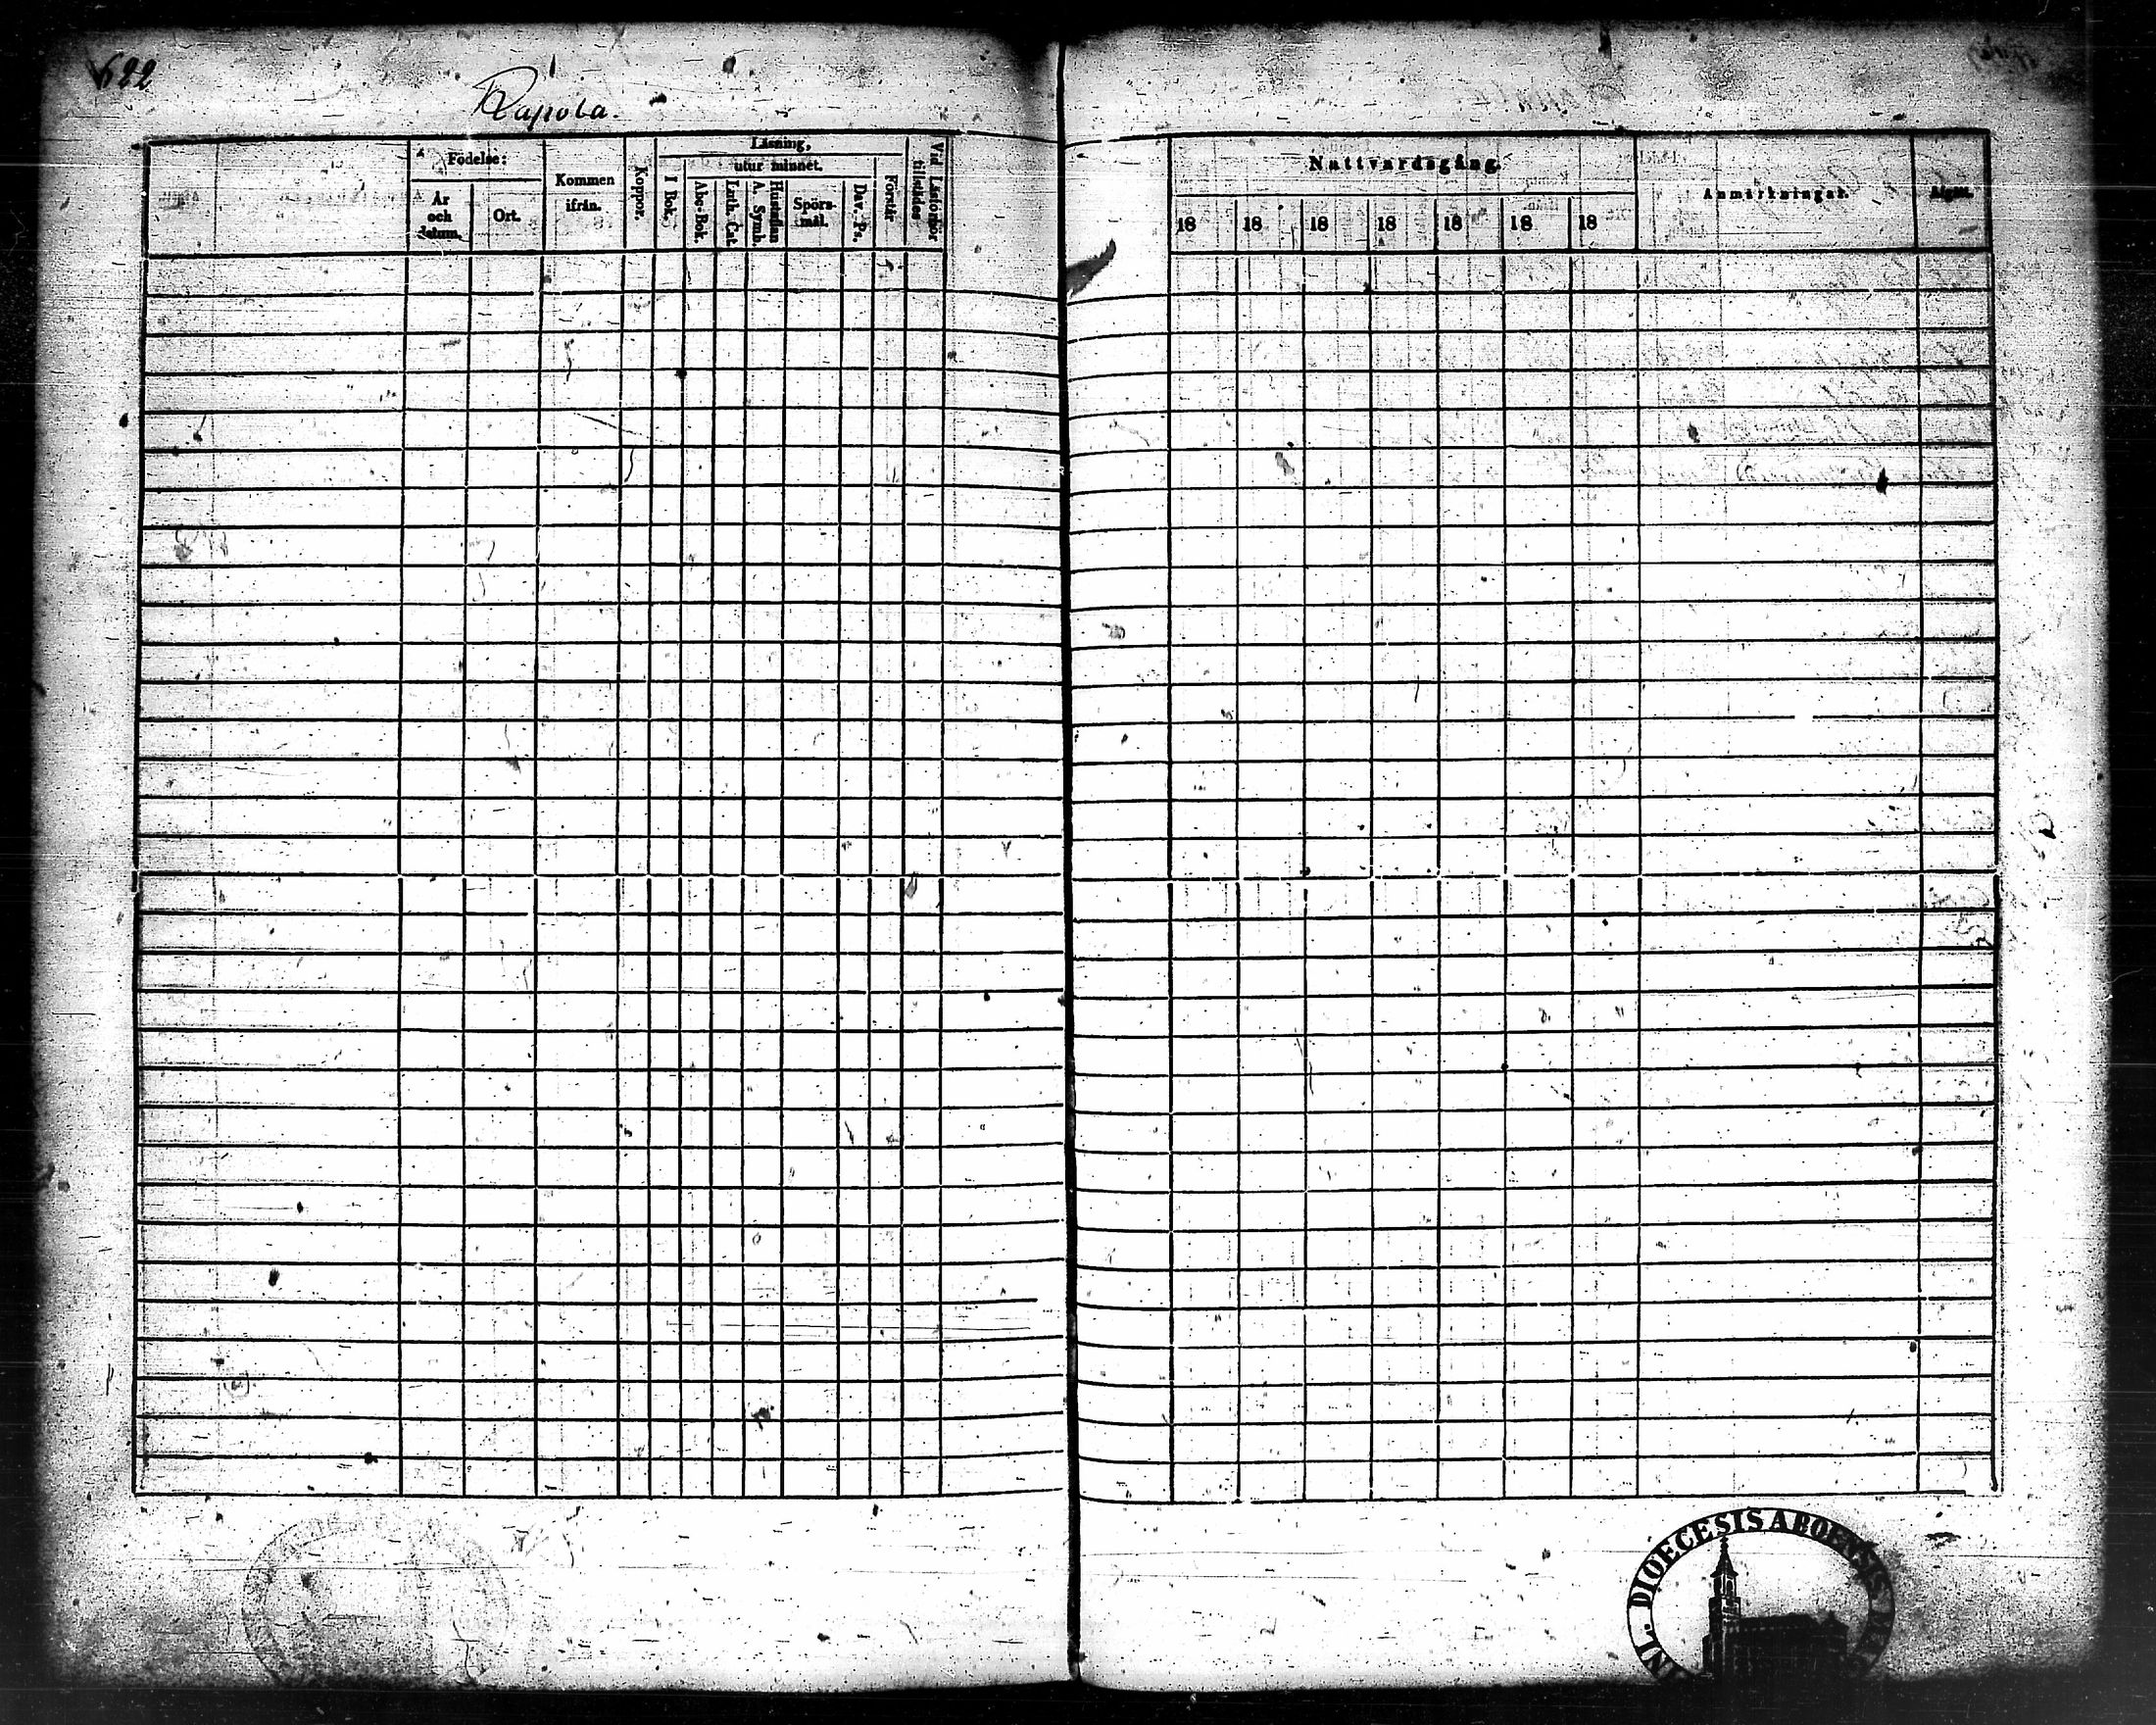 622
Rapola.
Födelse:
År och datum.
Ort.
Kommen ifrån.
Koppor.
Läsning,
utur minnet.
I Bok.
Abc-Bok.
Luth. Cat.
Hustaflan A. Symb.
Spörs-mål.
Dav. Ps.
Förstår
Vid Läsförhör tillstädes
Nattvardsgång.
18 18 18 18 18 18 18
Anmärkningar.
Afgått.
DIOECESIS ABOENSIS